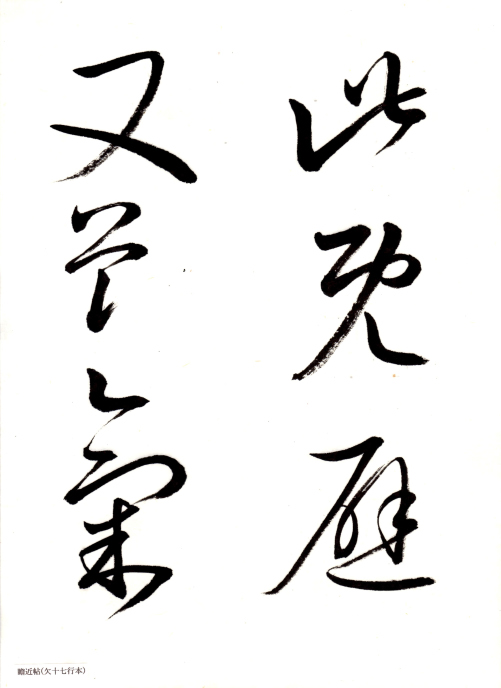 此既避
又節氣
瞻近帖(欠十七行本)